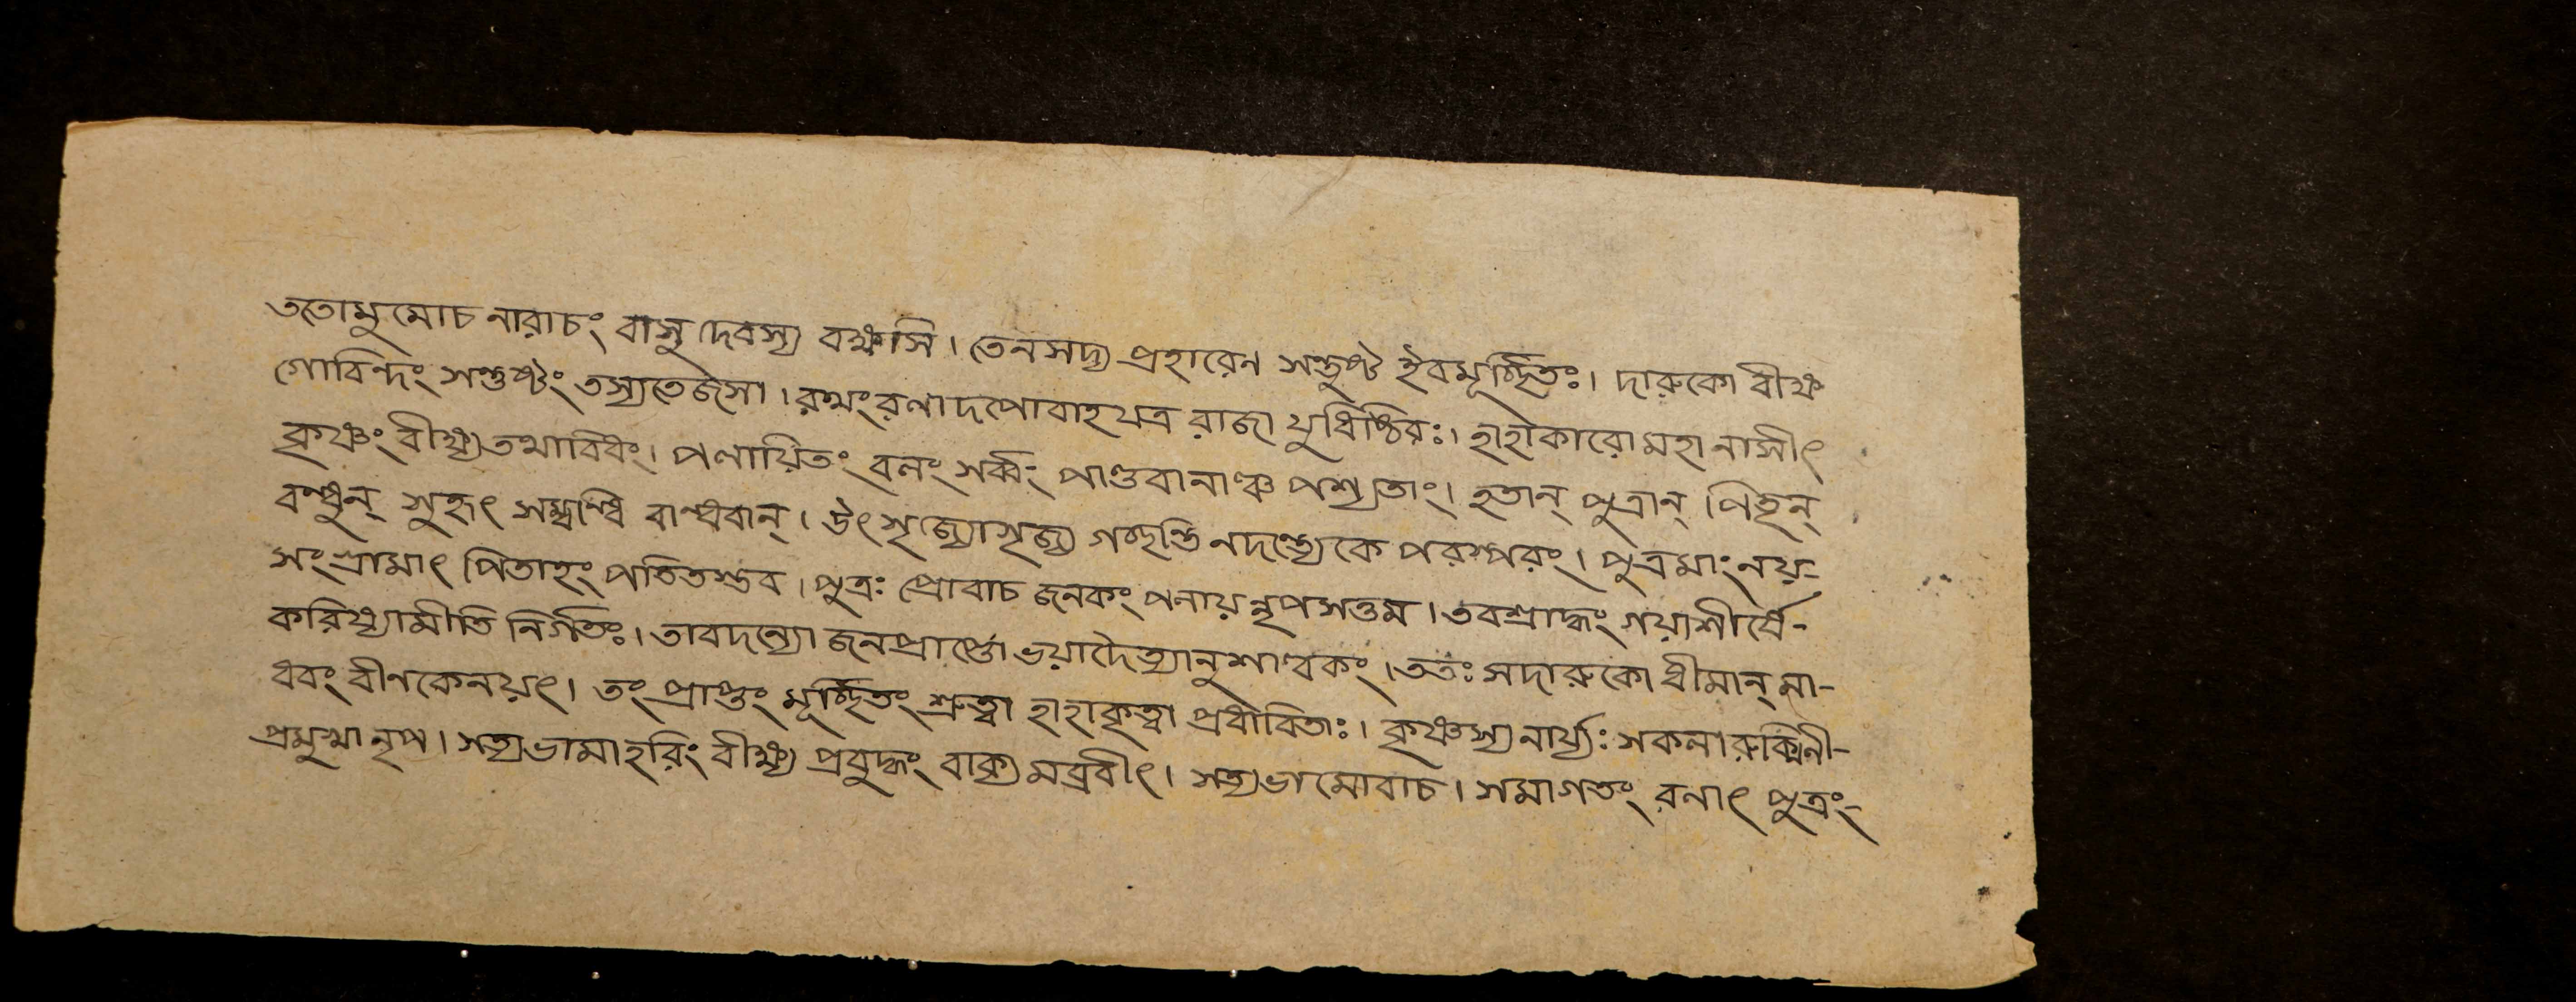 ততোমুমোচ নারাচং বাসুদেবস্য বক্ষসি। তেনসদ্য প্রহারেন সন্তুষ্ট ইবমূর্চ্ছিতঃ। দারুকো বীক্ষ
গোবিন্দং সন্তুষ্টং তস্যতেজসা। রথংরণাদপোবাহযত্র রাজা যুধিষ্ঠিরঃ। হাহাকারোমহানাসীৎ
কৃষ্ণং বীক্ষ্যতথাবিধং। পলায়িতং বলং সর্ব্বং পাণ্ডবানাঞ্চ পশ্যতাং। হতান্ পুত্রান্ পিতৃন্
বন্ধুন্ সুহৃৎ সম্বন্ধি বান্ধবান্। উৎসৃজ্যোসৃজ্য গচ্ছন্তি নদন্ত্যেকে পরস্পরং। পুত্রমাংনয়-
সংগ্রামাৎ পিতাহং পতিতস্তব। পুত্রঃ প্রোবাচ জনকং পলায়নৃপসত্তম। তবশ্রাদ্ধং গয়াশীর্ষে-
করিষ্যামীতি নির্গতঃ। তাবদন্যো জনপ্রাপ্তো ভয়াদৈত্যানুশাণ্বকং। ততঃ সদারুকো ধীমান্ মা-
ধবং বীণকেনয়ৎ। তং প্রাপ্তং মূর্চ্ছিতং শ্রুত্বা হাহাকৃত্বা প্রধাবিতাঃ। কৃষ্ণস্যনার্য্যঃ সকলারুক্মিনী-
প্রমুখানৃপ। সত্যভামাহরিং বীক্ষ্য প্রবুদ্ধং বাক্যমব্রবীৎ। সত্যভামোবাচ। সমাগতং রনাৎ পুত্রং-